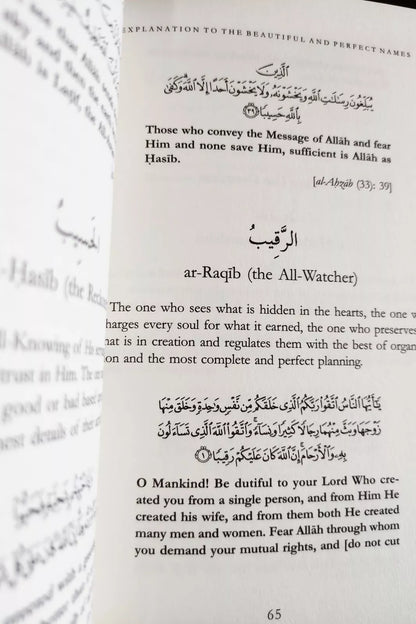 see that Allah
sky and then the
Allāh is Laṭīf, the
الحَسِيبُ
-Ḥasīb (the Reck
ll-Knowing of His
trust in Him. The
good or bad based
nest details of their
EXPLANATION TO THE BEAUTIFUL AND PERFECT NAMES
ٱلَّذِينَ
يُبَلِّغُونَ رِسَٰلَٰتِ ٱللَّهِ وَيَخْشَوْنَهُۥ وَلَا يَخْشَوْنَ أَحَدًا إِلَّا ٱللَّهَ ۗ وَكَفَىٰ
بِٱللَّهِ حَسِيبًا ﴿٣٩﴾
Those who convey the Message of Allāh and fear
Him and none save Him, sufficient is Allah as
Ḥasīb.
[al-Aḥzāb (33): 39]
الرَّقِيبُ
ar-Raqīb (the All-Watcher)
The one who sees what is hidden in the hearts, the one w
harges every soul for what it earned, the one who preserves
hat is in creation and regulates them with the best of organ
on and the most complete and perfect planning.
يَٰٓأَيُّهَا ٱلنَّاسُ ٱتَّقُوا۟ رَبَّكُمُ ٱلَّذِى خَلَقَكُم مِّن نَّفْسٍ وَٰحِدَةٍ وَخَلَقَ مِنْهَا
زَوْجَهَا وَبَثَّ مِنْهُمَا رِجَالًا كَثِيرًا وَنِسَآءً ۚ وَٱتَّقُوا۟ ٱللَّهَ ٱلَّذِى تَسَآءَلُونَ
بِهِۦ وَٱلْأَرْحَامَ ۚ إِنَّ ٱللَّهَ كَانَ عَلَيْكُمْ رَقِيبًا ﴿١﴾
O Mankind! Be dutiful to your Lord Who cre-
ated you from a single person, and from Him He
created his wife, and from them both He created
many men and women. Fear Allāh through whom
you demand your mutual rights, and [do not cut
65